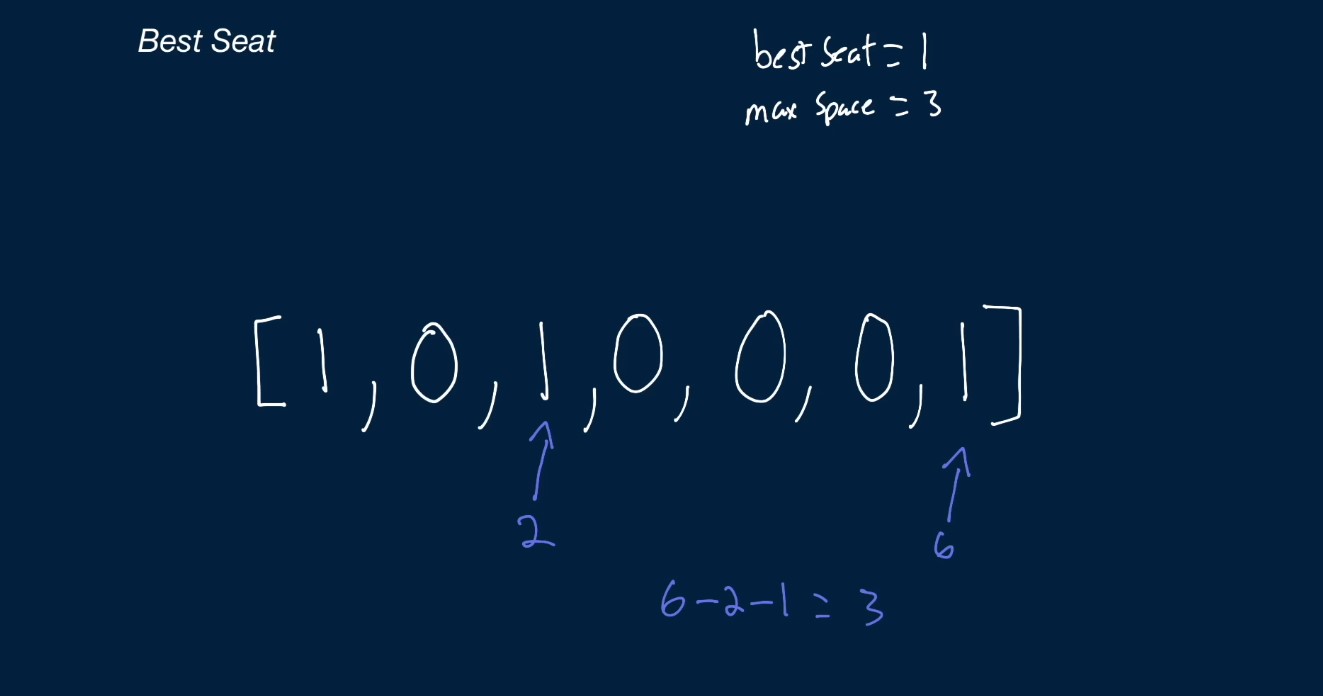 Best Seat
best seat = 1
max space = 3
[1, 0, 1, 0, 0, 0, 1]
2 6
6 - 2 - 1 = 3